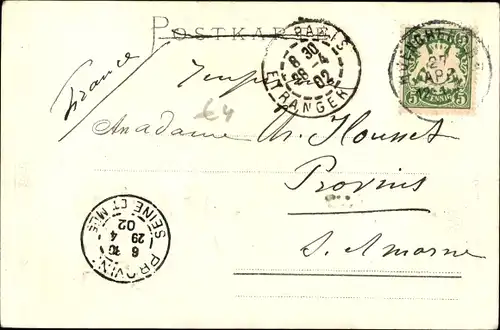 POSTKARTE
PARIS
8 30
28 -4
02
ETRANGER
27
APR
5 PFENNIG 5
France
Madame Ch. Housset
Provins
S. & Marne
£4
PROVINS
6 30
29 4
02
SEINE ET MNE